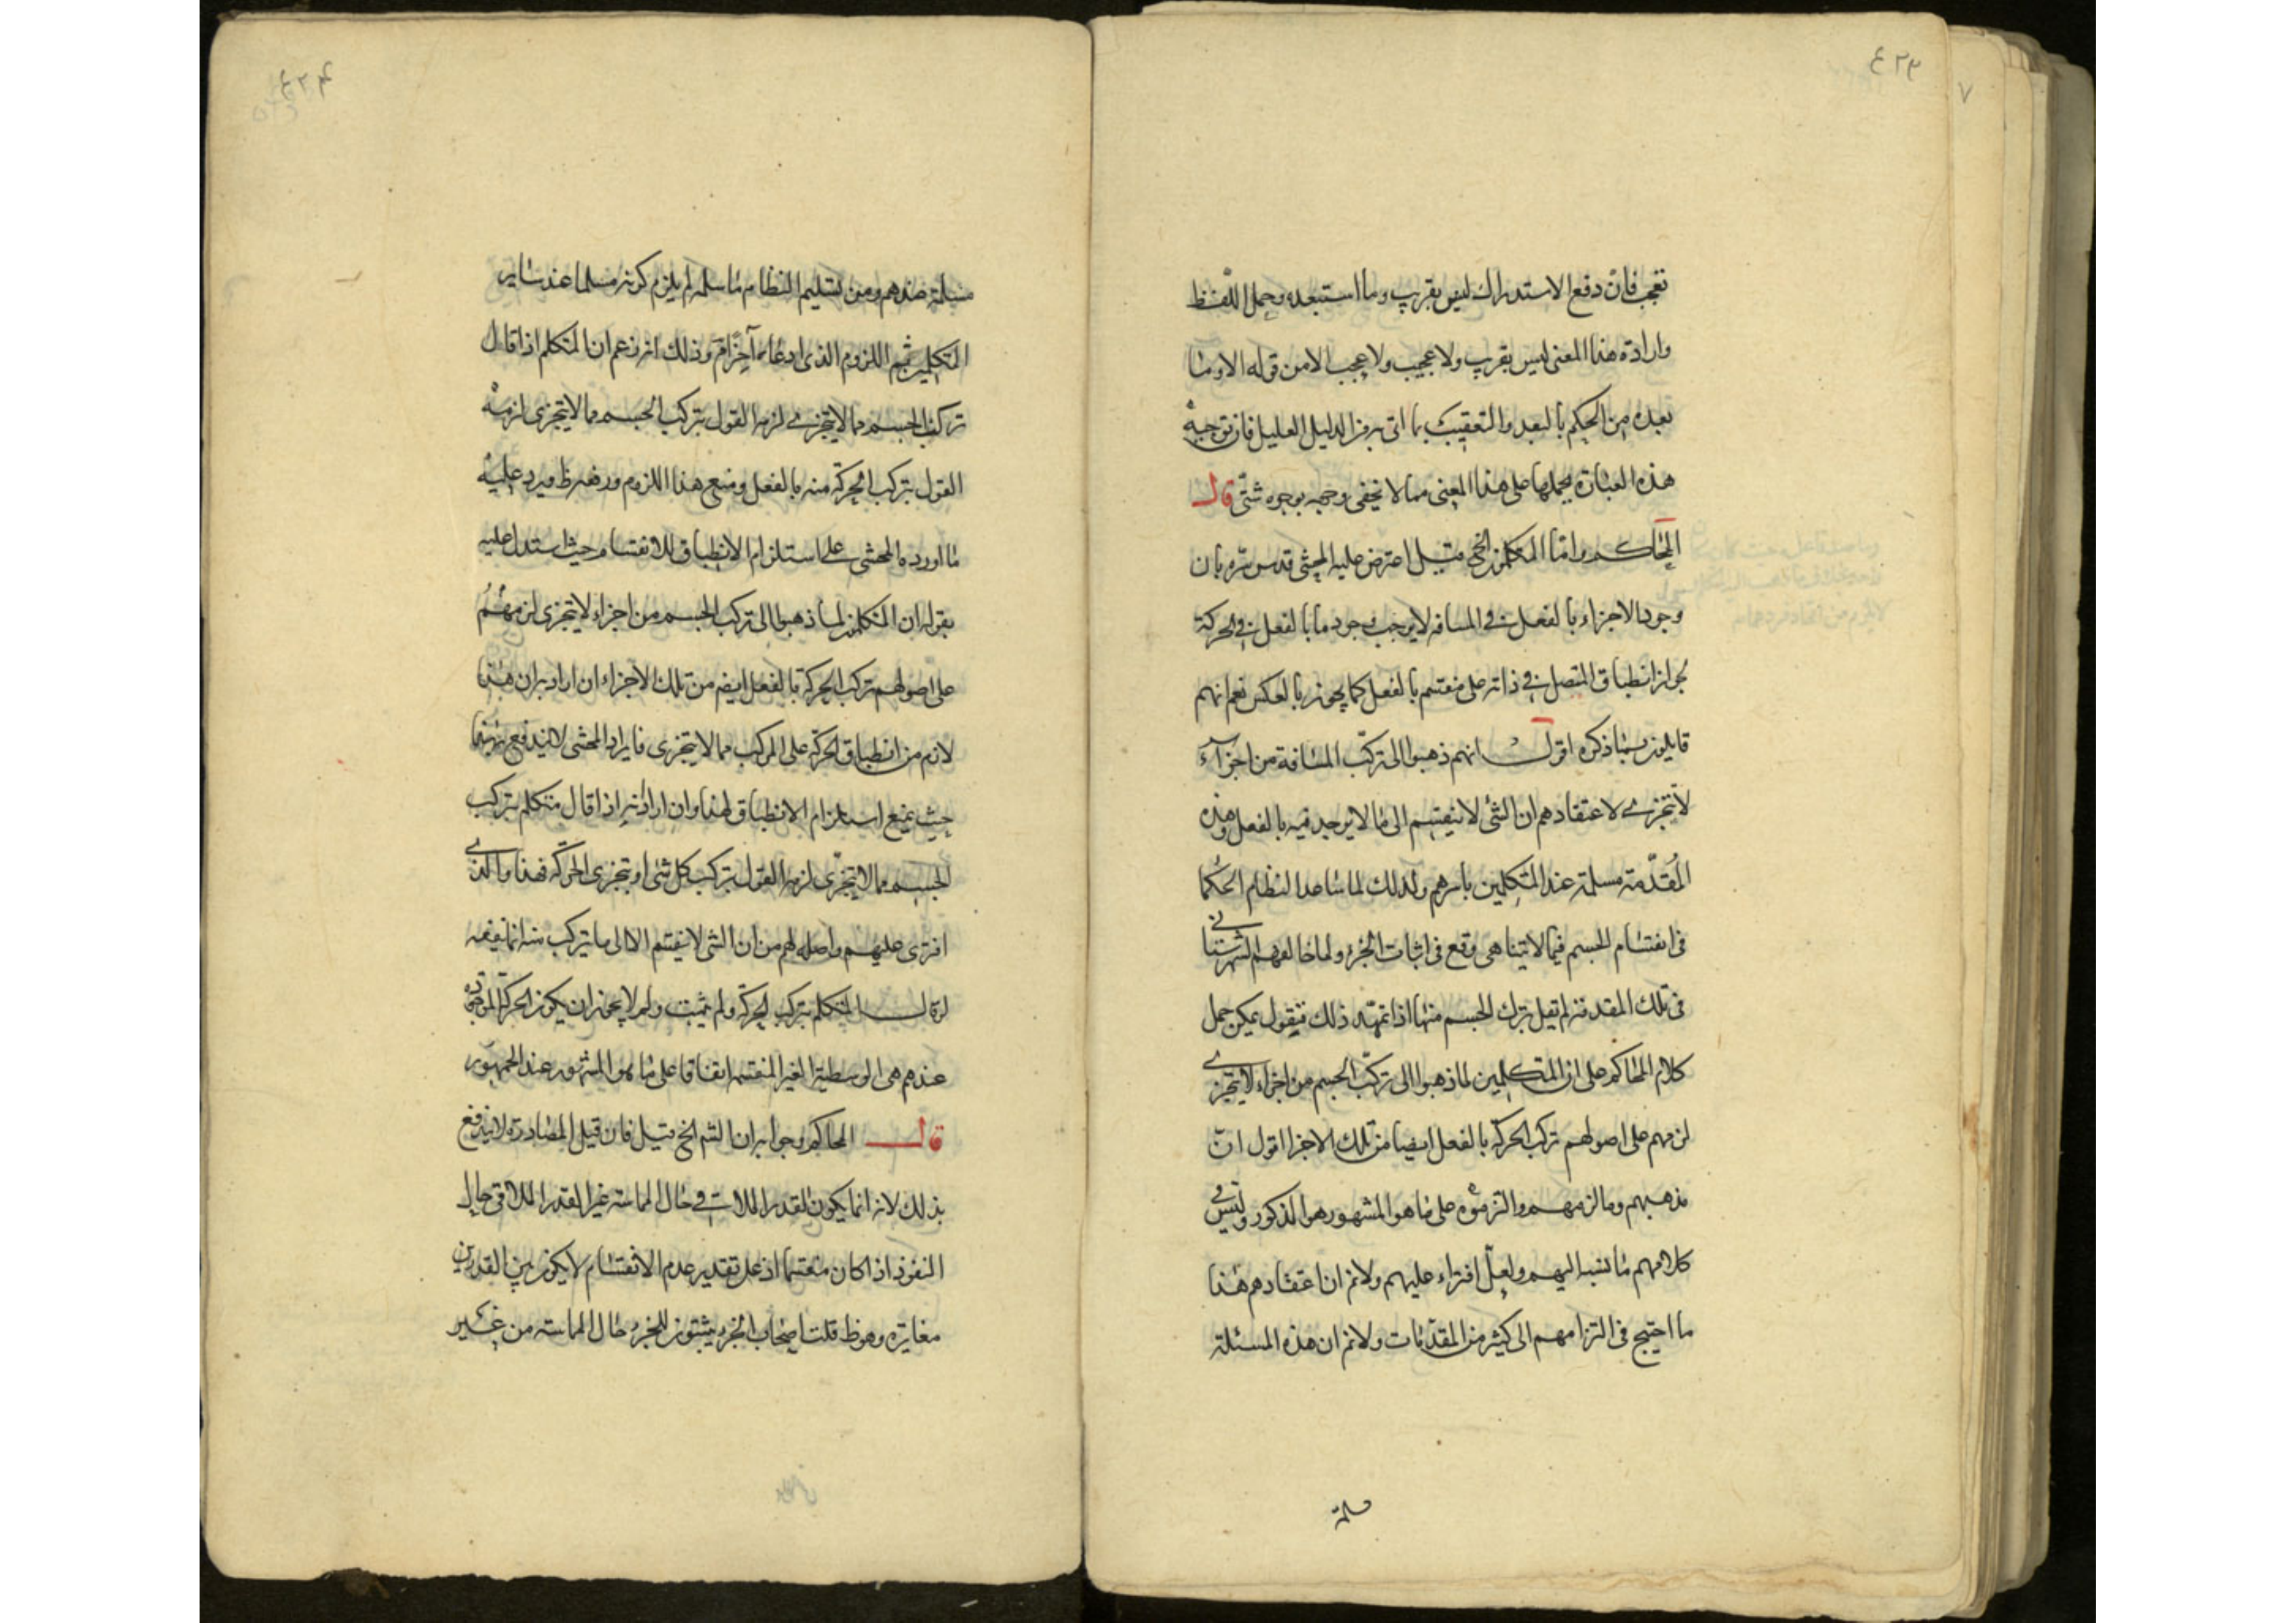 ٤٢٣
٧
تعجب فان دفع الاستدراك ليس بقريب وما استبعده وحمل اللفظ
وارادة هذا المعنى ليس بقريب ولا عجيب ولا عجب الا من قوله الا وما
بعده من الحكم بالبعد والتعقيب بما اتى به من الدليل العليل فان توجيه
هذه العبارة بحملها على هذا المعنى مما لا يخفى وجهه بوجوه شتى قال
المحاكم واما المتكلمون الخ قيل اعترض عليه المحشى قدس سره بان
وجود الاجزاء بالفعل فى المسافة لا يوجب وجود ما بالفعل فى الحركة
لجواز انطباق المتصل فى ذاته على منقسم بالفعل كما يجوز بالعكس نعم انهم
قايلون بما ذكره اقول انهم ذهبوا الى تركب المسافة من اجزاء
لا تتجزى لاعتقادهم ان الشئ لا ينقسم الى ما لا يوجد فيه بالفعل وهذه
المقدمة مسلمة عند المتكلمين باسرهم ولذلك لما ساعد النظام الحكما
فى انقسام الجسم فيما لا يتناهى وقع فى اثبات الجزء ولما خالفهم الشهرستانى
فى تلك المقدمة لم يقل بترك الجسم منها اذا تمهد ذلك فنقول يمكن حمل
كلام المحاكم على ان المتكلمين لما ذهبوا الى تركب الجسم من اجزاء لا يتجزى
لزمهم على اصولهم تركب الحركة بالفعل ايضا من تلك الاجزا اقول ان
مذهبهم وما لزمهم والتزموه على ما هو المشهور هو المذكور وليس فى
كلامهم ما نسبه اليهم ولعل افتراء عليهم ولانم ان اعتقادهم هذا
ما احتيج فى التزامهم الى كثير من المقدمات ولانم ان هذه المسئلة
مسلمة
٤٢٤
مسلمة عندهم ومن تسليم النظام ما سلمه لم يلزم كونه مسلما عند ساير
المتكلمين ثم اللزوم الذى ادعاه آخرا م وذلك انه زعم ان المتكلم اذا قال
تركب الجسم مما لا يتجزى لزمه القول بتركب الجسم مما لا يتجزى لزمه
القول بتركب الحركة منه بالفعل ومنع هذا اللزوم ودفعه ظ ويرد عليه
ما اورده المحشى على استلزام الانطباق للانقسام حيث استدل عليه
بقوله ان المتكلمين لما ذهبوا الى تركب الجسم من اجزاء لا يتجزى لزمهم
على اصولهم تركب الحركة بالفعل ايضم من تلك الاجزاء ان اراد به ان هذا
لازم من انطباق الحركة على المركب مما لا يتجزى فايراد المحشى لا يندفع
حيث يمنع استلزام الانطباق لهذا وان اراد انه اذا قال متكلم بتركب
الجسم مما لا يتجزى لزمه القول بتركب كل شئ او تجزى الحركة فهذا والذى
افترى عليهم واصله لهم من ان الشى لا ينقسم الا الى ما يتركب منه انما ينفعه
لو قال المتكلم بتركب الحركة ولم يثبت ولم لا يجوز ان يكون الحركة الموجودة
عندهم هى الوسطية الغير المنقسمة اتفاقا على ما هو المشهور عند الجمهور
قال المحاكم وجوابه ان القسم الخ قيل فان قيل المصادرة لا يندفع
بذلك لانه انما يكون القدر الملاقى فى حال المماسة غير القدر الملاقى حال
النفوذ اذا كان منقسما اذ على تقدير عدم الانقسام لا يكون بين القدرين
مغايرة وهو ظ قلت اصحاب الجزء يثبتون للجزء حال المماسة من غير